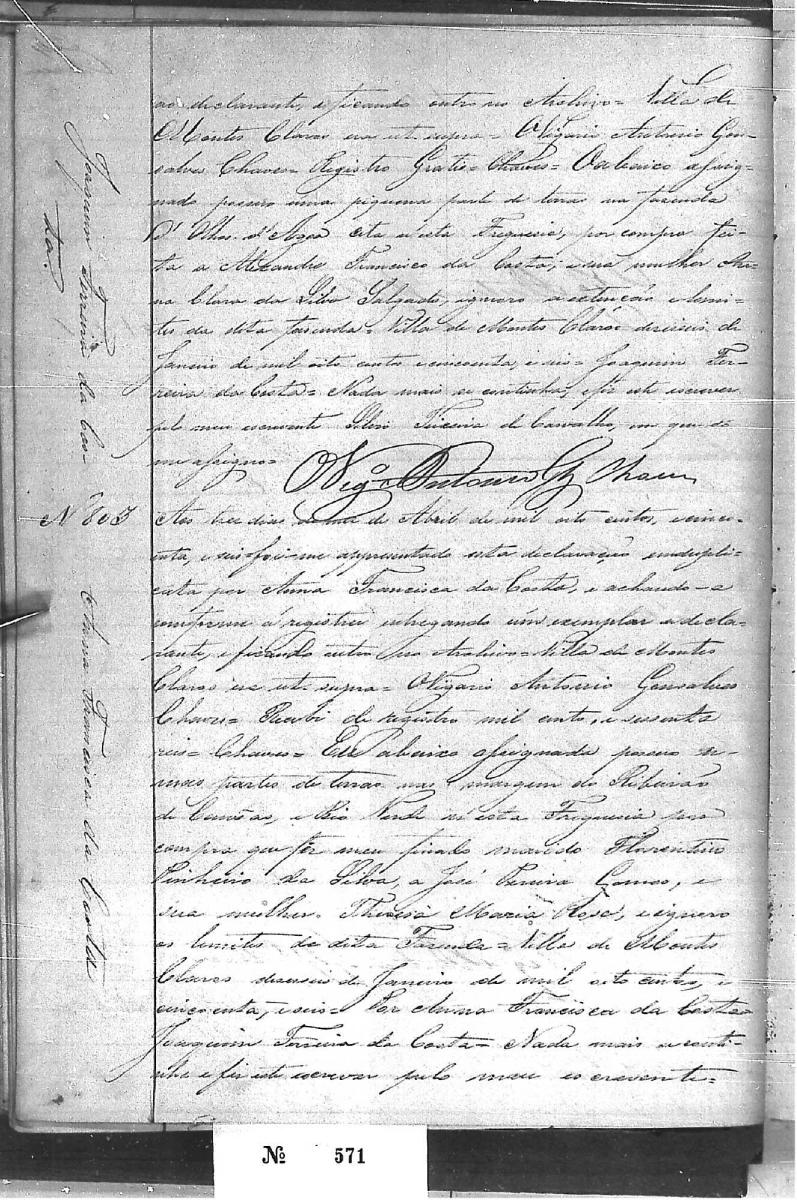 ao declarante, e ficando outro no Archivo = Villa de
Montes Claros era ut supra = O Vigario Antonio Gon-
salves Chaves = Registro Gratis = Chaves = O abaixo assig-
nado possuo uma piquena parte de terras na fazenda
d'Olhos d'Agoa cita n'esta Freguesia, por compra fei-
ta a Alexandre Francisco da Costa, e sua mulher An-
na Clara da Silva Salgado, ignoro a extenção e limi-
tes da dita fazenda = Villa de Montes Claros deseseis de
Janeiro de mil oito centos e cincoenta, e seis = Joaquim Fer-
reira da Costa = Nada mais se continha, e fiz este escrever
pelo meu escrevente Teixeira de Carvalho, em que
me assigno =
O Vig.o Antonio Glz Chaves
Joaquim Ferreira da Cos-
ta.
N 803
Anna Francisca da Costa
Aos tres dias do mez de Abril de mil oito centos, e cinco-
enta, e seis foi-me appresentado esta declaração em dupli-
cata por Anna Francisca da Costa, e achando-a
conforme a registrei entregando um exemplar a decla-
rante, e ficando outro no Archivo = Villa de Montes
Claros era ut supra = O Vigario Antonio Gonsalves
Chaves = Recebi de registro mil cento, e sessenta
reis = Chaves = Eu abaixo assignada possuo u-
mas partes de terras nas margem do Ribeirão
de Canôas, e Rio Verde n'esta Freguesia por
compra que fes meu finado marido Florentino
Pinheiro da Silva, a José Pereira Gomes, e
sua mulher Theresa Maria Rosa, e ignoro
os limites da dita Fazenda = Villa de Montes
Claros deseseis de Janeiro de mil oito centos, e
cincoenta, e seis = Por Anna Francisca da Costa =
Joaquim Ferreira da Costa = Nada mais se conti-
nha e fiz este escrever pelo meu escrevente =
№ 571